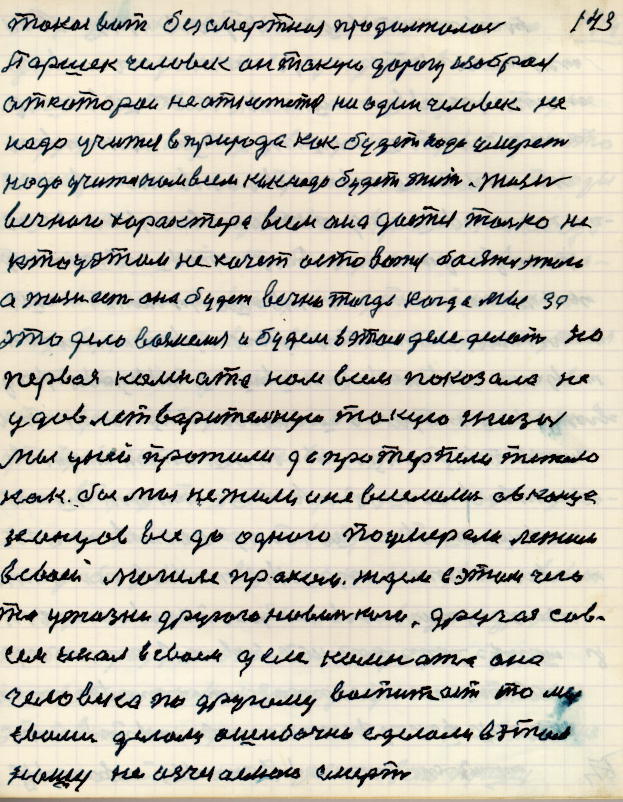 такая вот безсмертная продолжалася 143
Паршек человек он такую дорогу избрал
аткоторой неаткажется ни один человек не
надо учится в природа как будет надо умереть
надо учится нам всем как надо будет жить. Жизнь
вечного характера всем она дается только не
кто у этом не хочет оставатся боятся этого
а жизнь есть она будет вечно тогда когда мы за
это дело возмемся и будем в этом деле делать но
первая комната нам всем показала не
удовлетварительную такую жизнь
мы у ней прожили да протерпели тяжело
как. бы мы не жили и не веселились в конце
концов все до одного поумерали лежим
в своей могиле прахом. ждем в этом чего
то у жизни другого новинького. другая сов-
сем иная в своем деле комната она
человека по другому воспитает то мы
своими делами ошибочно сделали в этом
нашу не изучаемою смерть